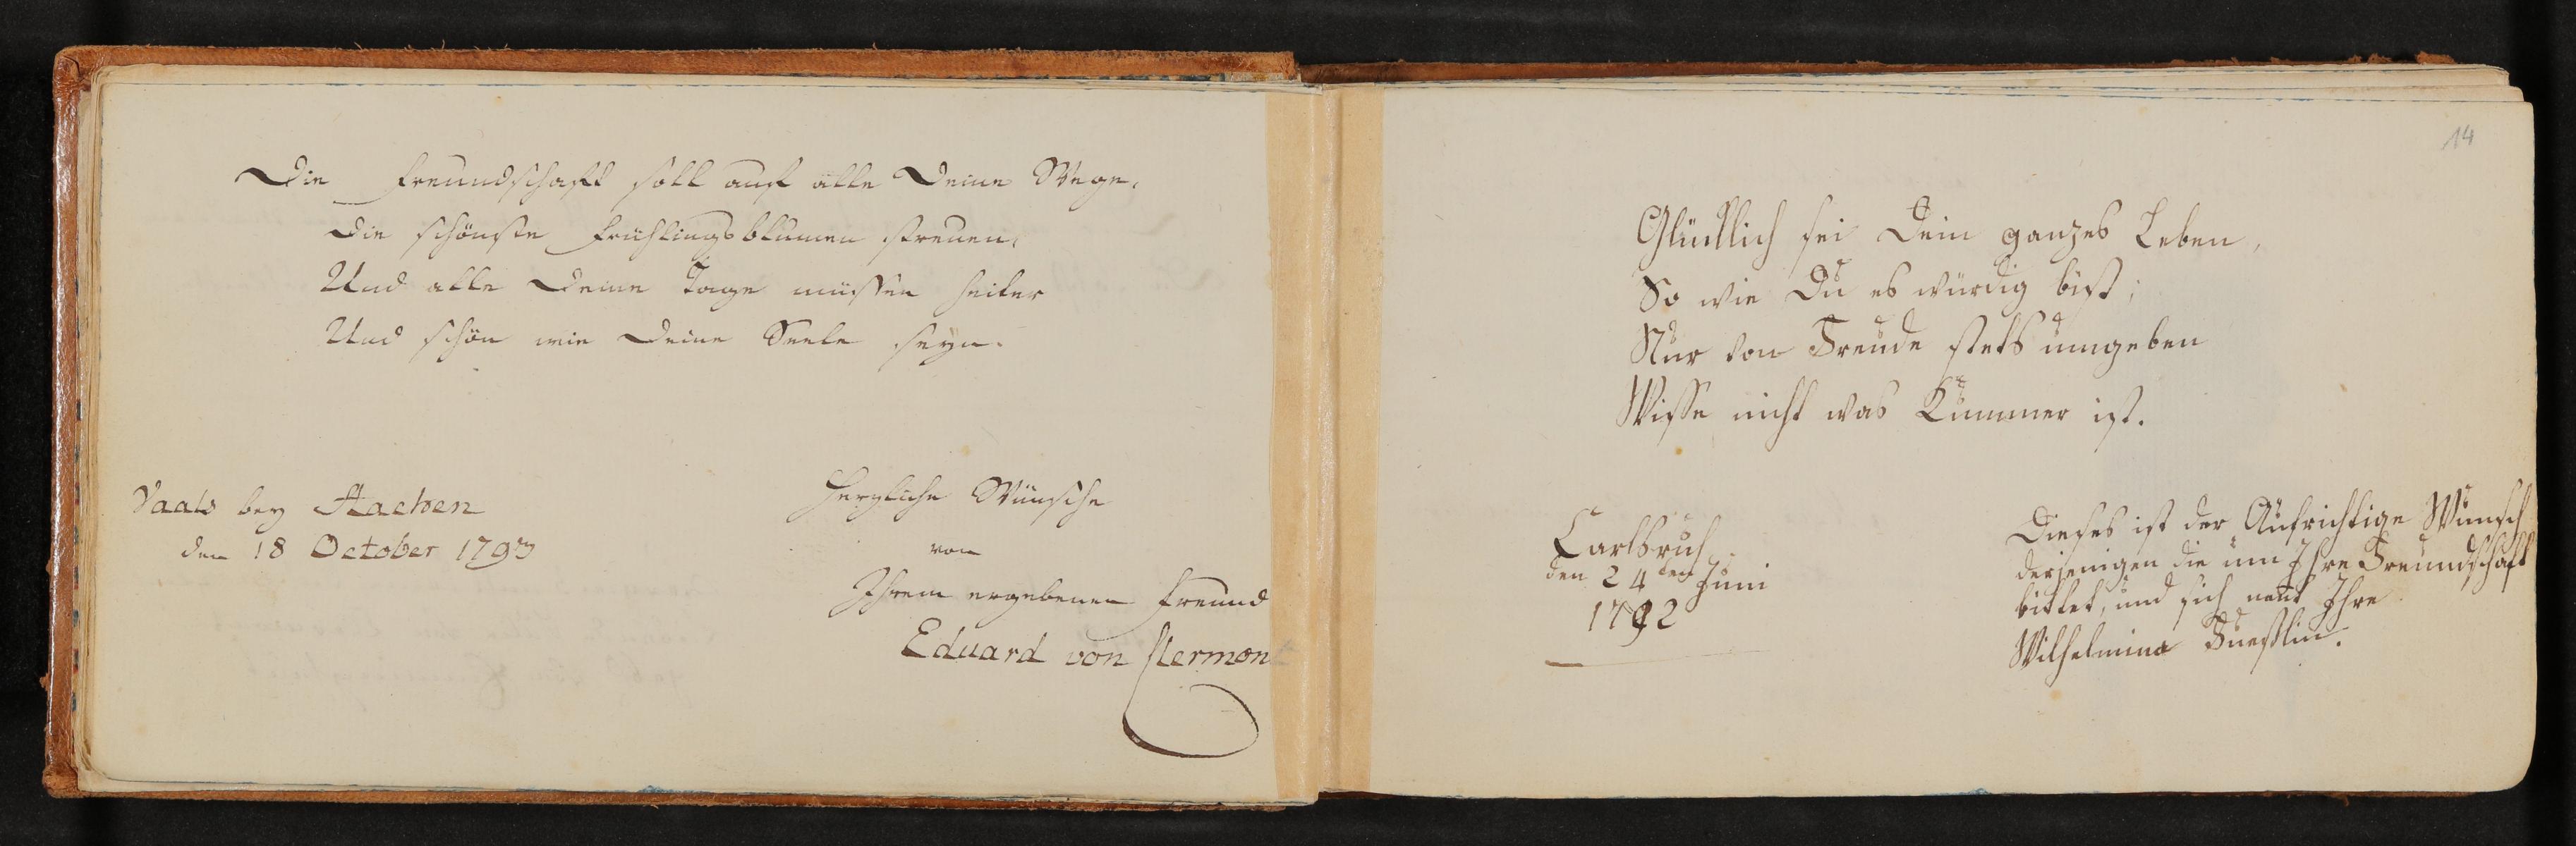 Die Freundschaft soll auf alle Deine Wege,
Die schönste Frühlingsblumen streuen,
Und alle Deine Tage müssen heiter
Und schön wie Deine Seele seyn.
Vaals bey Aachen
den 18 October 1793
Herzliche Wünsche
von
Ihrem ergebenen Freund
Eduard von Clermont
14
Glücklich sei Dein ganzes Leben,
So wie Du es würdig bist;
Nur von Freude stets umgeben
Wisse nicht was Kummer ist.
Carlsruh
den 24ten Juni
1792
Dieses ist der Aufrichtige Wunsch
derjenigen die um Ihre Freundschaft
bittet, und sich nent Ihre
Wilhelmina